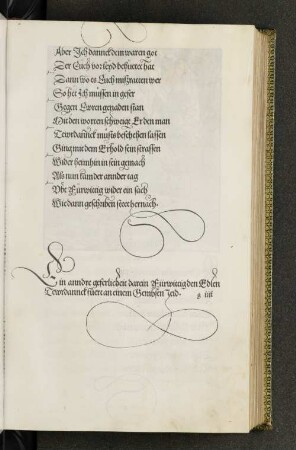 Aber Ich dannck dem waren got
Der Euch vor leyd behuetet hat
Dann wo es Euch misraten wer
So het Ich müssen in gefer
Gegen Ewrn genaden stan
Mit den worten schweige Er den man
Tewrdannck muss beschehen lassen
Gieng mit dem Erhold sein strassen
Wider heimhin in sein gemach
Als nun kům der annder tag
Vbt Fürwittig wider ein sach
Wie dann geschriben steet hernach
Ein anndre geferlicheit darein Fürwittig den Edlen
Tewrdannck füert an einem Gembsen Jeid
g iiii